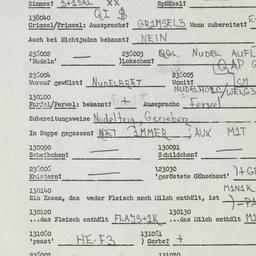 Zimmes?
138040 QI $
Grimsel/Frimsel: Aussprache? GRIMSEL3 Wann zubereitet?
Auch bei Nichtjuden bekannt? NEIN
236002 236003 QGL NUDEL AUFL
'Nudeln' Lokschen? QAP G
236004 236005
Worauf gewälzt? NUDELBRET Womit? 1CM
130100 NUDELHOLC/WELG3
Farfel/Fervel: bekannt? + Aussprache Fervel
Zubereitungsweise Nudelteig, Gerieben
In Suppe gegessen? NET IMMER AUX MIT
130090 130091
Scheibchen? Schildchen?
236006 123030 )+G
Knistern? 'geröstete Gänsehaut'
130140 MINIK
Ein Essen, das weder Fleisch noch Milch enthält, ist )=PA
130120 130130
...das Fleisch enthält FLAJS+1K ...das Milch enthält M
131060 131061
'yeast' HE:F3 Gerbe? +
131070